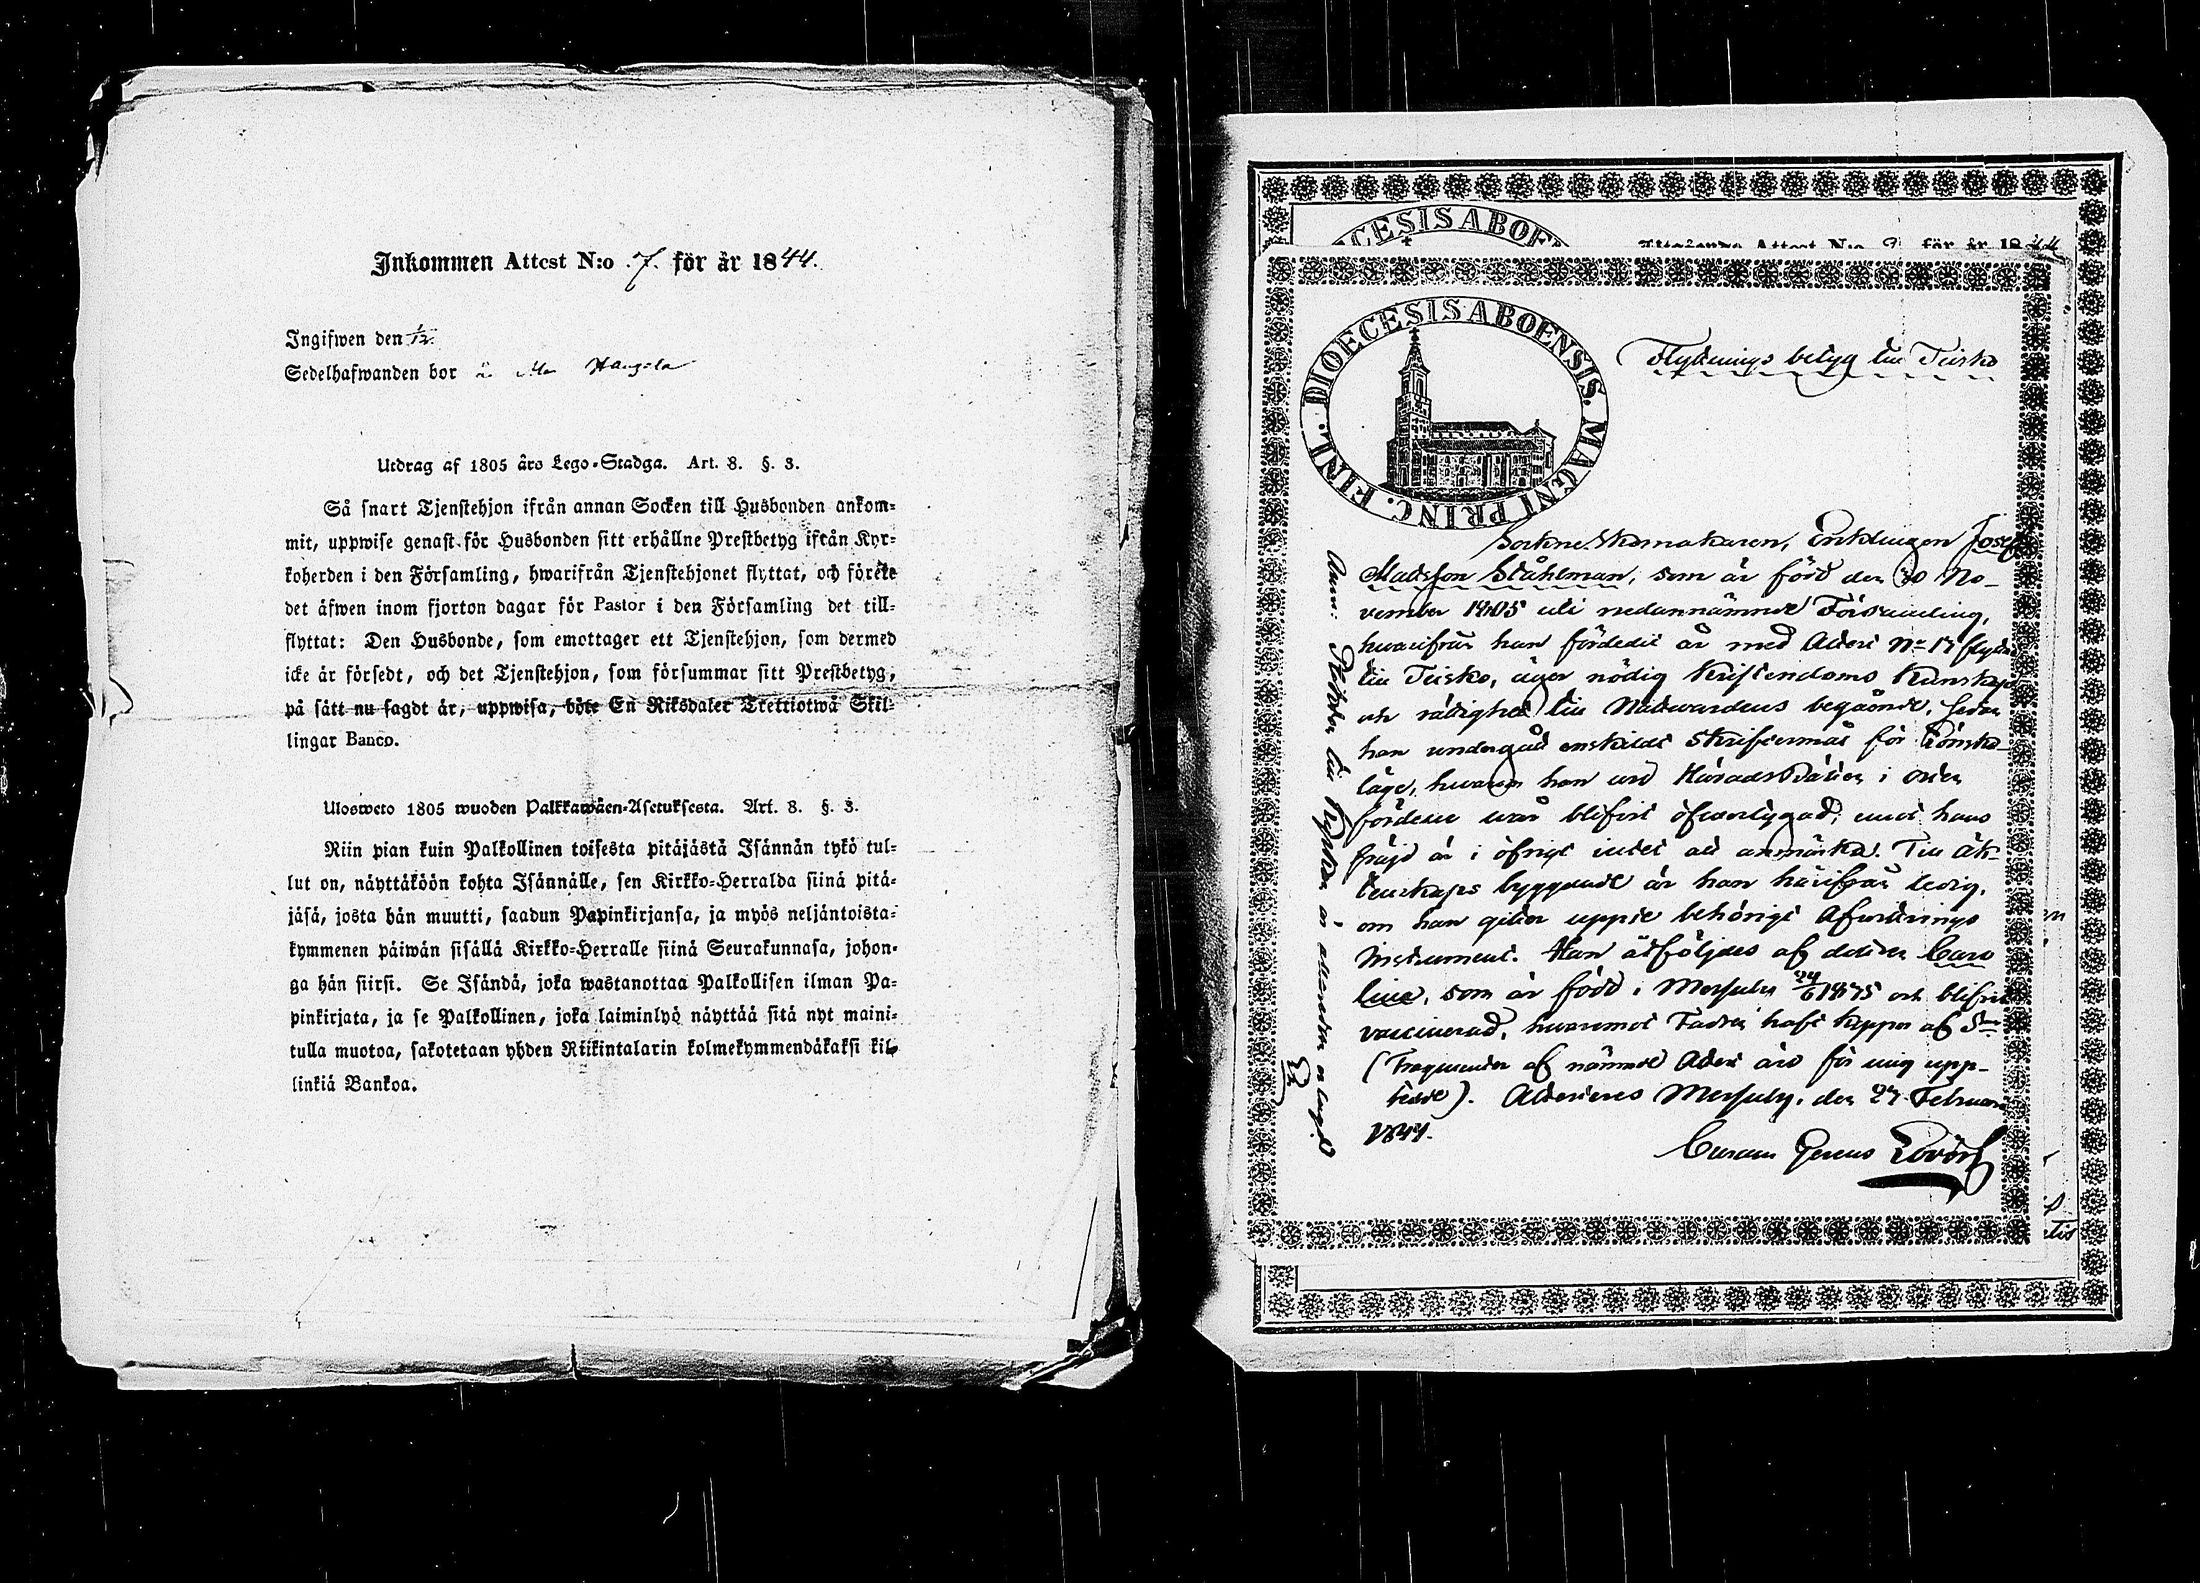 Inkommen Attest N:o 7. för år 1844.
Ingifwen den
Sedelhafwanden bor
Utdrag af 1805 års Lego-Stadga. Art. 8. §. 3.
Så snart Tjenstehjon ifrån annan Socken till Husbonden ankom=
mit, uppwise genast för Husbonden sitt erhållne Prestbetyg ifrån Kyr=
koherden i den Församling, hwarifrån Tjenstehjonet flyttat, och förete
det äfwen inom fjorton dagar för Pastor i den Församling det till=
flyttat: Den Husbonde, som emottager ett Tjenstehjon, som dermed
icke är försedt, och det Tjenstehjon, som försummar sitt Prestbetyg,
på sätt nu sagdt är, uppwisa, böte En Riksdaler Trettiotwå Skil=
lingar Banco.
Ulosweto 1805 wuoden Palkkawäen-Asetuksesta. Art. 8. §. 3.
Niin pian kuin Palkollinen toisesta pitäjästä Isännän tykö tul=
lut on, näyttäköön kohta Isännälle, sen Kirkko=Herralda siinä pitä=
jäsä, josta hän muutti, saadun Papinkirjansa, ja myös neljäntoista=
kymmenen päiwän sisällä Kirkko=Herralle siinä Seurakunnasa, johon=
ga hän siirsi. Se Isändä, joka wastanottaa Palkollisen ilman Pa=
pinkirjata, ja se Palkollinen, joka laiminlyö näyttää sitä nyt maini=
tulla muotoa, sakotetaan yhden Riikintalarin kolmekymmendäkaksi kil=
linkiä Bankoa.
DIOECESIS ABOENSIS
Attest N:o för år 1844
DIOECESIS ABOENSIS. MAGNI PRINC. FINL.
Flyttnings betyg till Teisko
Sockne Skomakaren, Enklingen Josef
Mattsson Ståhlman, som är född den 30 No-
vember 1805 uti nedannämnde Församling,
hwarifrån han är med Attest N:o 17 flyttad
till Teisko, äger nödig Kristendoms Kunskap
och rättighet till Nattwardens begående, sedan
han undergått enskildt Skriftermål för Lönska-
läge, hwartill han wid Härads Rätten i orten
blifwit öfwertygad, emot hans
frejd är i öfrigt intet att anmärka. Till äk-
tenskaps byggande är han härifrån ledig,
om han gitter uppte behörigt Afwittrings
Instrument. Han åtföljdes af dottren Caro
lina, som är född i Messuby och blifwit
vaccinerad, hwaremot Fadren haft koppor af S:n
(Fragmenter af nämnde Attest äro för mig upp-
tedde). Attesteres Messuby, den 27 Februari
1844.
Curam Gerens